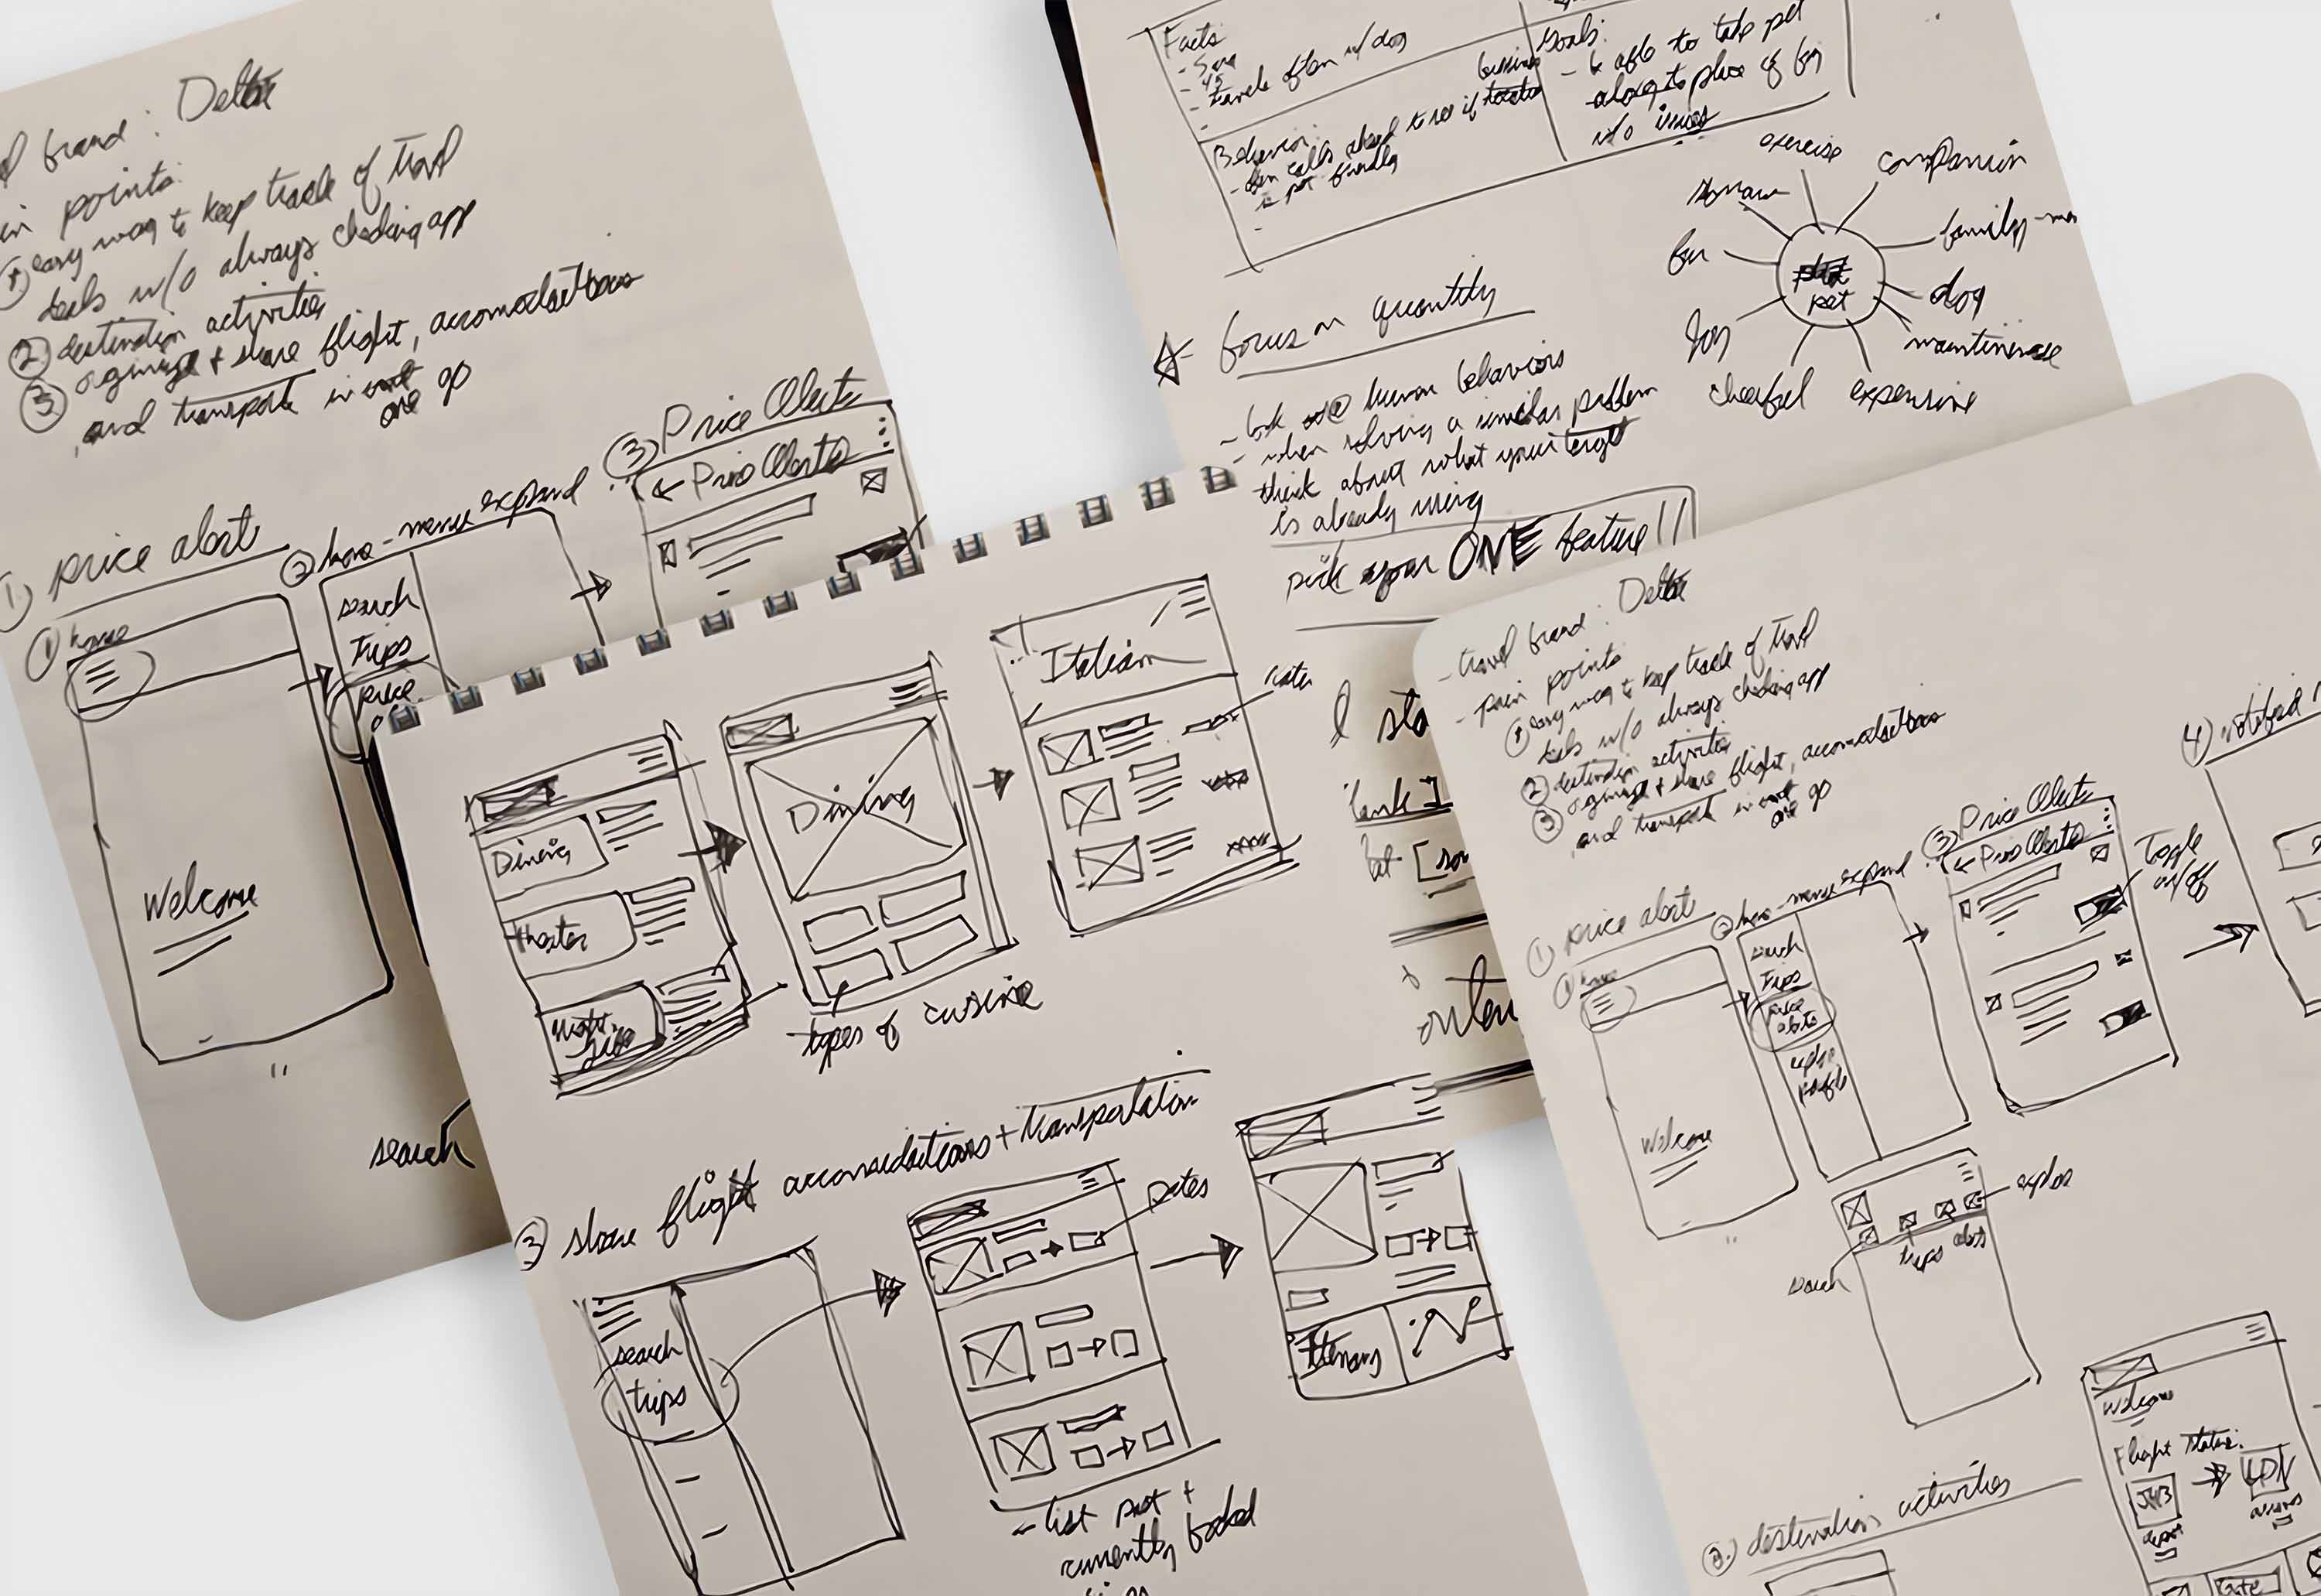 brand : Delta
points
① easy way to keep track of travel
deals w/o always checking app
② destination activities
③ organize + share flight, accomodations
, and transport in one go
① price alert
① home
Welcome
② home - menu expand
search
Trips
price
③ Price Alerts
← Price Alerts
search
Facts
- 45
- travels often w/ dog
Behavior:
- often calls ahead to see if business
is pet friendly
Goals:
- be able to take pet
along to place of
w/o issues
exercise
companion
dog
maintinence
expensive
cheerful
joy
fun
pet
focus on quantity
- look @ human behaviors
- when solving a similar problem
think about what your target
is already using
pick your ONE feature!!
Dining
theater
night
life
Dining
types of cuisine
Italian
③ share flight accomidations + transportation
search
trips
dates
- list past +
currently booked
Itinerary
- travel brand : Delta
- pain points
① easy way to keep track of travel
deals w/o always checking app
② destination activities
③ organize + share flight, accomodations
, and transport in one go
① price alert
① home
Welcome
② home - menu expand
search
Trips
price
alerts
explore
profile
③ Price Alerts
← Price Alerts
Toggle
on/off
search
trips
alerts
explore
② destination activities
Welcome
Flight Status:
LDN